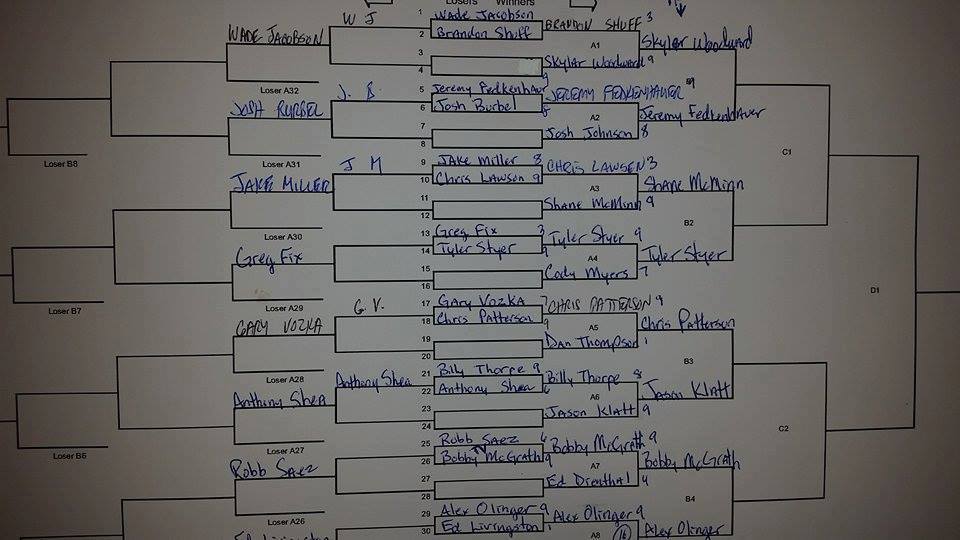 Losers Winners
W J
1 Wade Jacobson
2 Brandon Shuff
BRANDON SHUFF 3
WADE JACOBSON
A1
Skylar Woodward
3
4
Skylar Woodward 9
Loser A32
5 Jeremy Fedkenhauer 9
J. B.
JEREMY FEDKENHAUER 9
6 Josh Burbel 8
JOSH BURBEL
A2
Jeremy Fedkenhauer
7
8
Josh Johnson 8
C1
Loser B8
Loser A31
9 JAke Miller 8
J M
CHRIS LAWSEN 3
10 Chris Lawson 9
JAKE MILLER
A3
Shane McMinn
11
12
Shane McMinn 9
B2
Loser A30
13 Greg Fix 3
14 Tyler Styer 9
Tyler Styer 9
Greg Fix
A4
Tyler Styer
15
16
Cody Myers 7
D1
Loser B7
Loser A29
17 Gary Vozka 7
G. V.
CHRIS PATTERSON 9
18 Chris Patterson 9
GARY VOZKA
A5
Chris Patterson
19
20
Dan Thompson 1
B3
Loser A28
21 Billy Thorpe 9
Anthony Shea
22 Anthony Shea 6
Billy Thorpe 8
Anthony Shea
A6
Jason Klatt
23
24
Jason Klatt 9
C2
Loser B6
Loser A27
25 Robb Saez 4
26 Bobby McGrath 9
Bobby McGrath 9
Robb Saez
A7
Bobby McGrath
27
28
Ed Drenthal 4
B4
Loser A26
29 Alex Olinger 9
30 Ed Livingston 1
Alex Olinger 9
Ed Livingston
A8
16
Alex Olinger